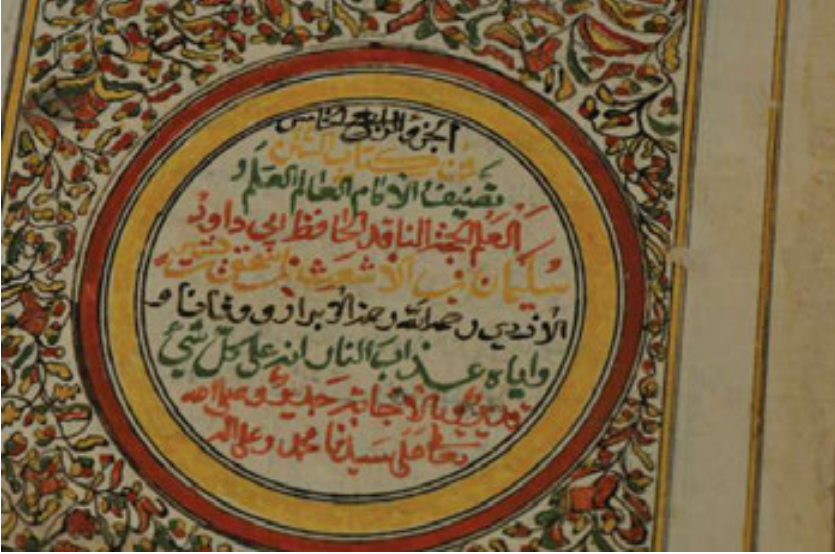 الجزء الرابع الخامس
من كتاب السنن
تصنيف الامام العالم العلم و
العلم الجثة الناقد الحافظ ابي داود
سليمان ابن الاشعث
الازدي رحمه الله رحمة الابرار ووقانا و
واياه عذاب النار انه على كل شيء
قدير وبالاجابة جدير وصلى الله
تعالى على سيدنا محمد وعلى اله